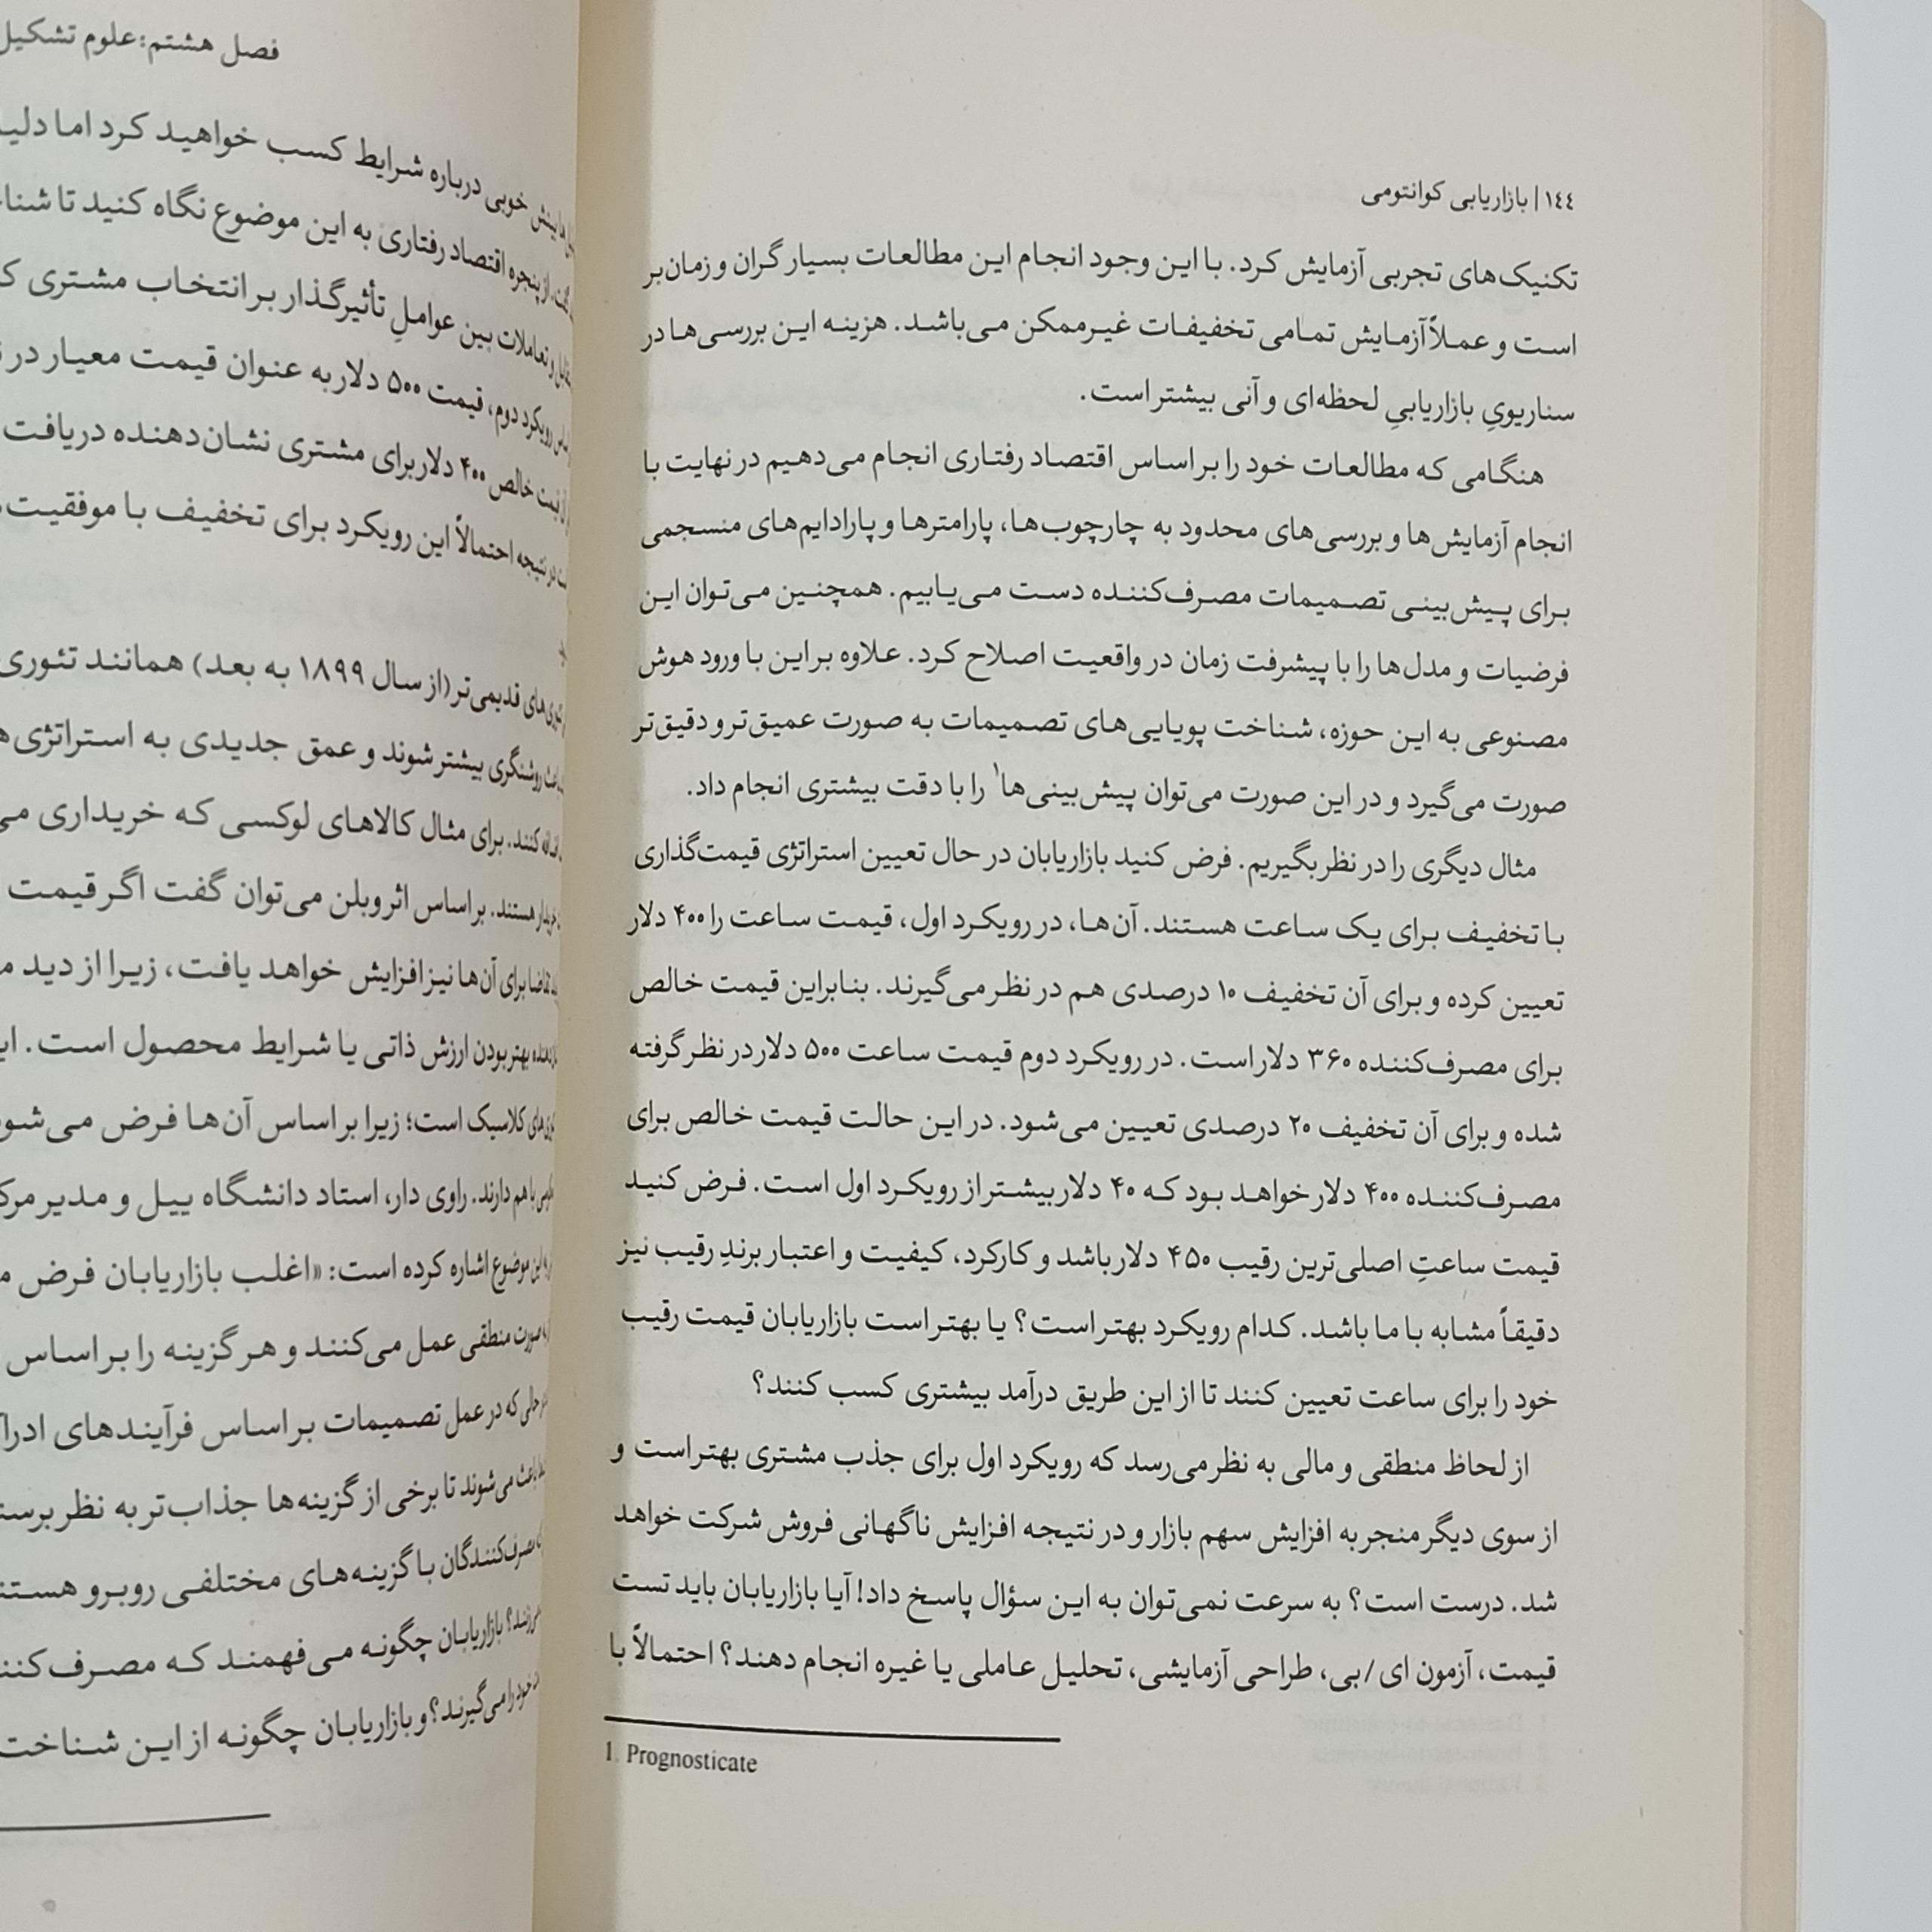 ١٤٤ | بازاریابی کوانتومی
تکنیک‌های تجربی آزمایش کرد. با این وجود انجام این مطالعات بسیار گران و زمان‌بر
است و عملاً آزمایش تمامی تخفیفات غیرممکن می‌باشد. هزینه این بررسی‌ها در
سناریوی بازاریابیِ لحظه‌ای و آنی بیشتر است.
هنگامی که مطالعات خود را بر اساس اقتصاد رفتاری انجام می‌دهیم در نهایت با
انجام آزمایش‌ها و بررسی‌های محدود به چارچوب‌ها، پارامترها و پارادایم‌های منسجمی
برای پیش‌بینی تصمیمات مصرف‌کننده دست می‌یابیم. همچنین می‌توان این
فرضیات و مدل‌ها را با پیشرفت زمان در واقعیت اصلاح کرد. علاوه بر این با ورود هوش
مصنوعی به این حوزه، شناخت پویایی‌های تصمیمات به صورت عمیق‌تر و دقیق‌تر
صورت می‌گیرد و در این صورت می‌توان پیش‌بینی‌ها۱ را با دقت بیشتری انجام داد.
مثال دیگری را در نظر بگیریم. فرض کنید بازاریابان در حال تعیین استراتژی قیمت‌گذاری
با تخفیف برای یک ساعت هستند. آن‌ها، در رویکرد اول، قیمت ساعت را ۴۰۰ دلار
تعیین کرده و برای آن تخفیف ۱۰ درصدی هم در نظر می‌گیرند. بنابراین قیمت خالص
برای مصرف‌کننده ۳۶۰ دلار است. در رویکرد دوم قیمت ساعت ۵۰۰ دلار در نظر گرفته
شده و برای آن تخفیف ۲۰ درصدی تعیین می‌شود. در این حالت قیمت خالص برای
مصرف‌کننده ۴۰۰ دلار خواهد بود که ۴۰ دلار بیشتر از رویکرد اول است. فرض کنید
قیمت ساعتِ اصلی‌ترین رقیب ۴۵۰ دلار باشد و کارکرد، کیفیت و اعتبار برندِ رقیب نیز
دقیقاً مشابه با ما باشد. کدام رویکرد بهتر است؟ یا بهتر است بازاریابان قیمت رقیب
خود را برای ساعت تعیین کنند تا از این طریق درآمد بیشتری کسب کنند؟
از لحاظ منطقی و مالی به نظر می‌رسد که رویکرد اول برای جذب مشتری بهتر است و
از سوی دیگر منجر به افزایش سهم بازار و در نتیجه افزایش ناگهانی فروش شرکت خواهد
شد. درست است؟ به سرعت نمی‌توان به این سؤال پاسخ داد! آیا بازاریابان باید تست
قیمت، آزمون ای/بی، طراحی آزمایشی، تحلیل عاملی یا غیره انجام دهند؟ احتمالاً با
1. Prognosticate
فصل هشتم: علوم تشکیل
بینش خوبی درباره شرایط کسب خواهید کرد اما
از پنجره اقتصاد رفتاری به این موضوع نگاه کنید تا
و تعاملات بین عواملِ تأثیرگذار بر انتخاب مشتری
رویکرد دوم، قیمت ۵۰۰ دلار به عنوان قیمت معیار در
خالص ۴۰۰ دلار برای مشتری نشان‌دهنده دریافت
در نتیجه احتمالاً این رویکرد برای تخفیف با موفقیت
های قدیمی‌تر (از سال ۱۸۹۹ به بعد) همانند تئوری
روشنگری بیشتر شوند و عمق جدیدی به استراتژی
کنند. برای مثال کالاهای لوکسی که خریداری
هستند. بر اساس اثر وبلن می‌توان گفت اگر قیمت
برای آن‌ها نیز افزایش خواهد یافت، زیرا از دید
بهتر بودن ارزش ذاتی یا شرایط محصول است.
های کلاسیک است؛ زیرا بر اساس آن‌ها فرض می‌شو
با هم دارند. راوی دار، استاد دانشگاه ییل و مدیر
این موضوع اشاره کرده است: «اغلب بازاریابان فرض
صورت منطقی عمل می‌کنند و هر گزینه را بر اساس
که در عمل تصمیمات بر اساس فرآیندهای
باعث می‌شوند تا برخی از گزینه‌ها جذاب‌تر به نظر
مصرف‌کنندگان با گزینه‌های مختلفی روبرو
بازاریابان چگونه می‌فهمند که
خود را می‌گیرند؟ و بازاریابان چگونه از این شناخت